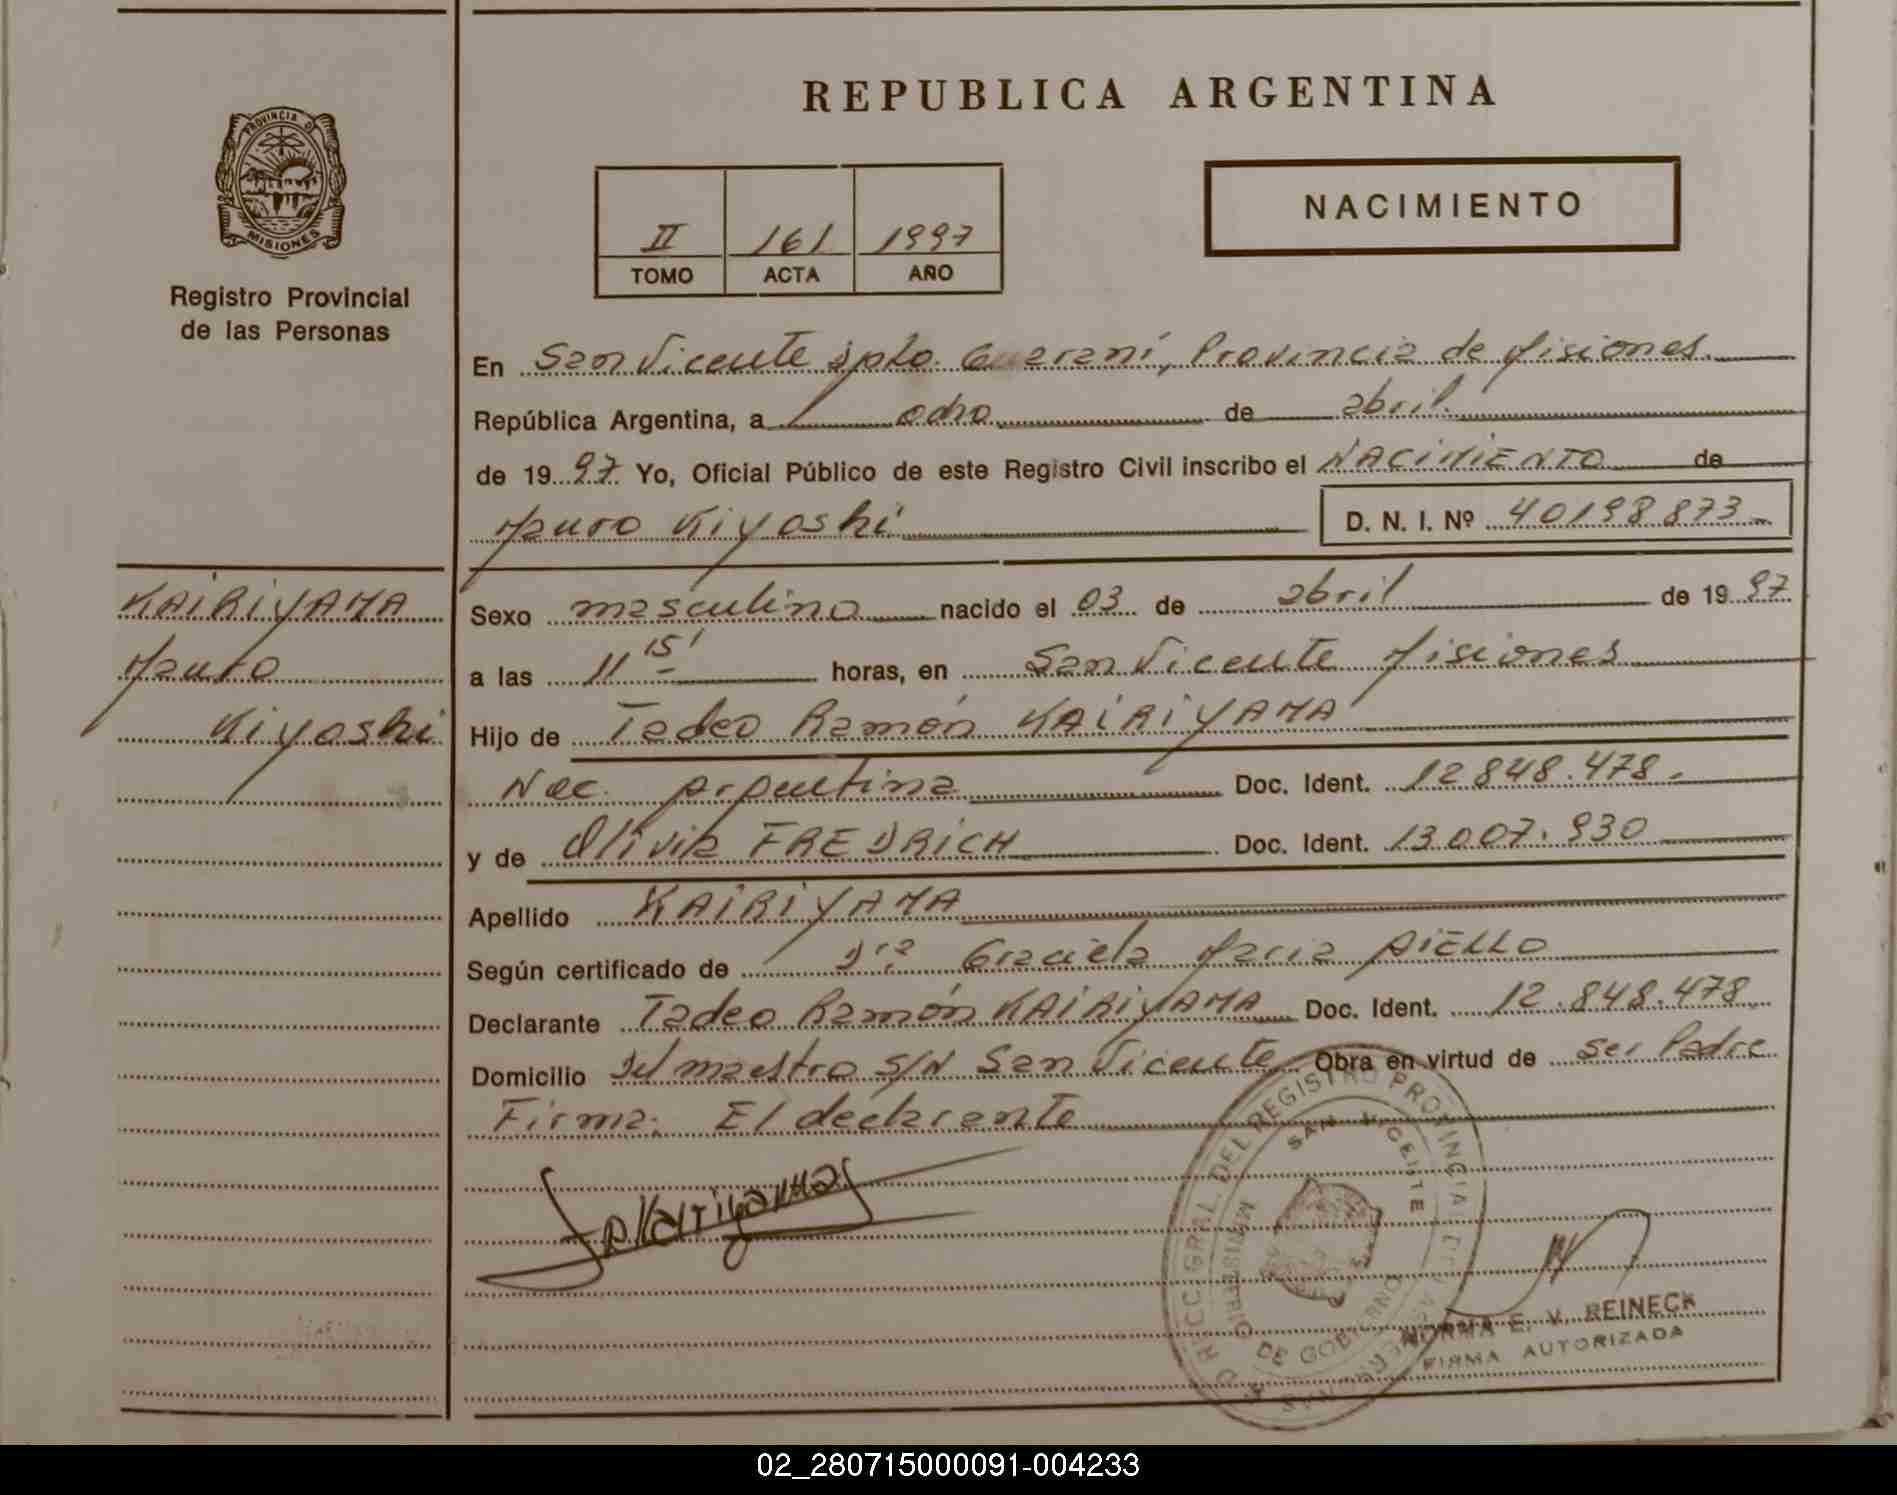 REPUBLICA ARGENTINA
PROVINCIA D
MISIONES
Registro Provincial
de las Personas
II 161 1997
TOMO ACTA AÑO
NACIMIENTO
En San Vicente Dpto. Guaraní, Provincia de Misiones.
República Argentina, a ocho de abril
de 1997 Yo, Oficial Público de este Registro Civil inscribo el NACIMIENTO de
Mauro Kiyoshi D. N. I. Nº 40198873
KAIRIYAMA
Mauro
Kiyoshi
Sexo masculino nacido el 03 de abril de 1997
a las 11 15' horas, en San Vicente Misiones
Hijo de Tadeo Ramón KAIRIYAMA
Nac. Argentina Doc. Ident. 12848.478.
y de Olivia FREDRICH Doc. Ident. 13007.930
Apellido KAIRIYAMA
Según certificado de Dra Graciela Maria AIELLO
Declarante Tadeo Ramón KAIRIYAMA Doc. Ident. 12.848.478
Domicilio Del maestro S/N San Vicente Obra en virtud de ser Padre
Firma: El declarante
DEL REGISTRO PROVINCIAL
SAN VICENTE
MINISTERIO DE GOBIERNO
NORMA E. V. REINECK
FIRMA AUTORIZADA
02_280715000091-004233